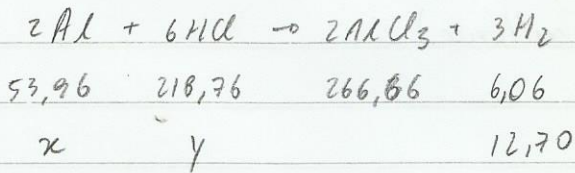 2Al + 6HCl → 2AlCl₃ + 3H₂
53,96 218,76 266,66 6,06
x y 12,70